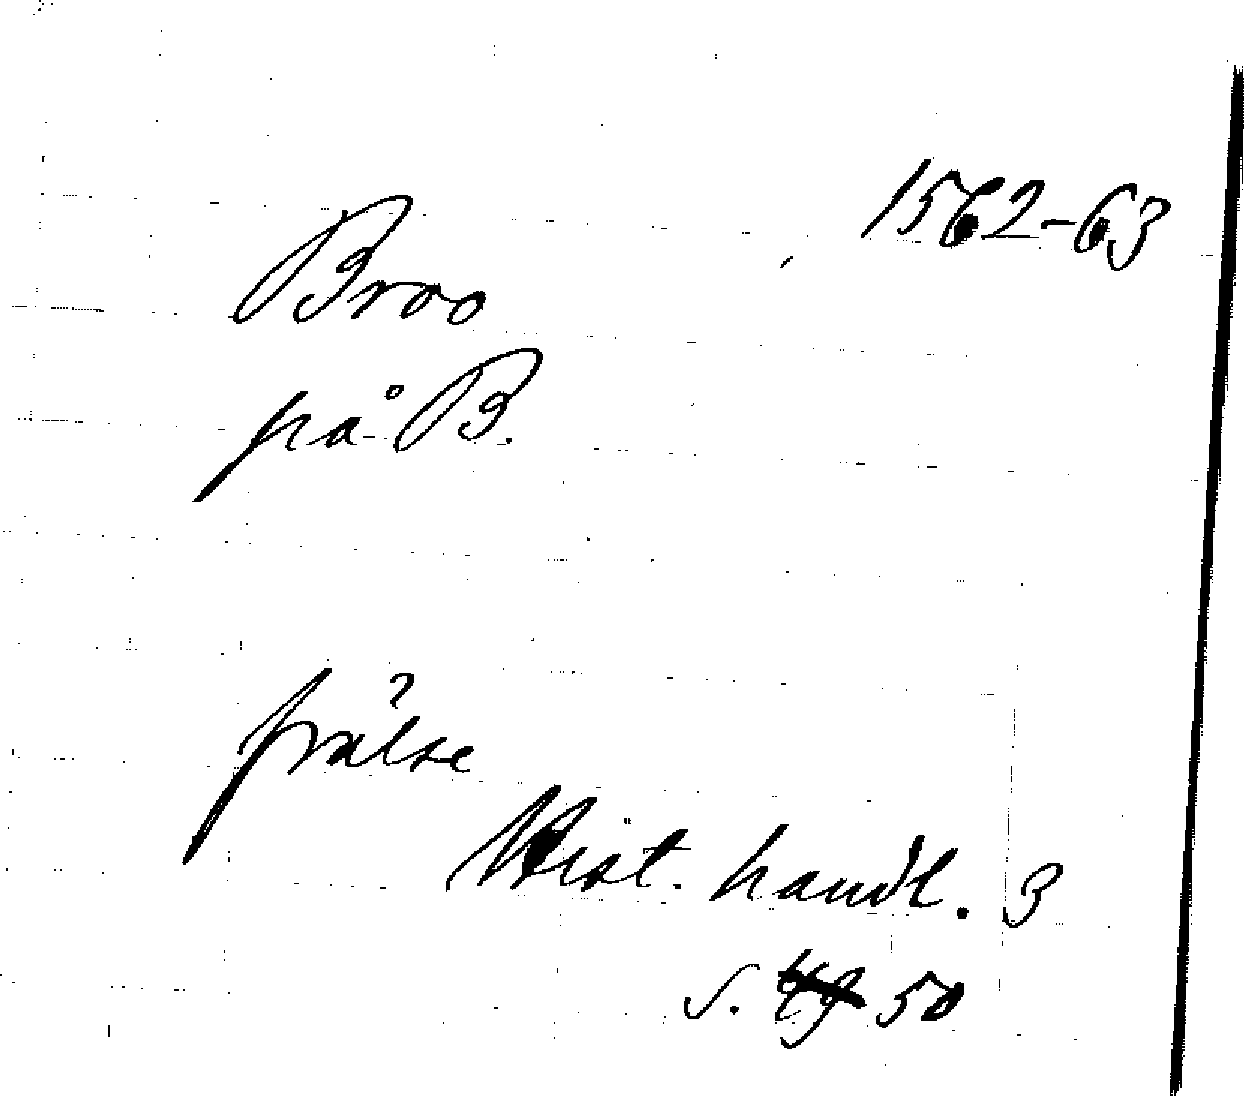 1562-63
Broo
på B.
frälse
Hist. handl. 3
s. 50